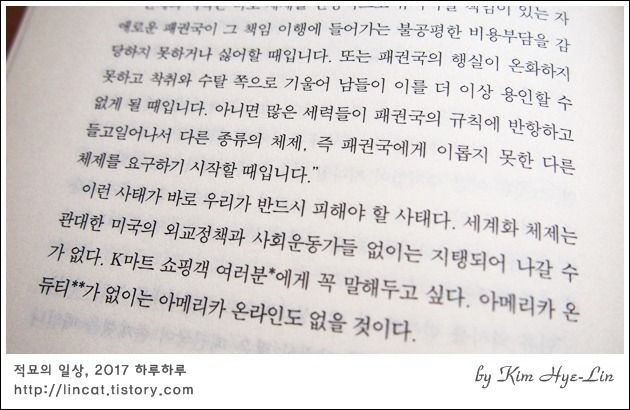 애로운 패권국이 그 책임 이행에 들어가는 불공평한 비용부담을 감
당하지 못하거나 싫어할 때입니다. 또는 패권국의 행실이 온화하지
못하고 착취와 수탈 쪽으로 기울어 남들이 이를 더 이상 용인할 수
없게 될 때입니다. 아니면 많은 세력들이 패권국의 규칙에 반항하고
들고일어나서 다른 종류의 체제, 즉 패권국에게 이롭지 못한 다른
체제를 요구하기 시작할 때입니다.”
이런 사태가 바로 우리가 반드시 피해야 할 사태다. 세계화 체제는
관대한 미국의 외교정책과 사회운동가들 없이는 지탱되어 나갈 수
가 없다. K마트 쇼핑객 여러분*에게 꼭 말해두고 싶다. 아메리카 온
듀티**가 없이는 아메리카 온라인도 없을 것이다.
적묘의 일상, 2017 하루하루
http://lincat.tistory.com
by Kim Hye-Lin